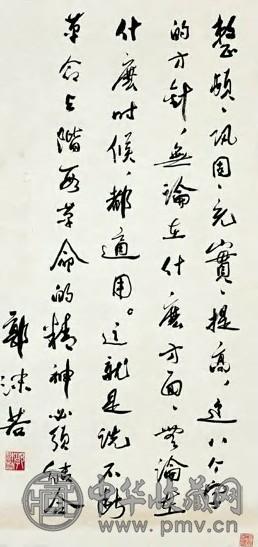 整頓、巩固、充實、提高，这八个字
的方針，無論在什麼方面、無論在
什麼时候，都適用。这就是说不断
革命与階段革命的精神必須結合
郭沫若
中华收藏网
www.pmv.cn